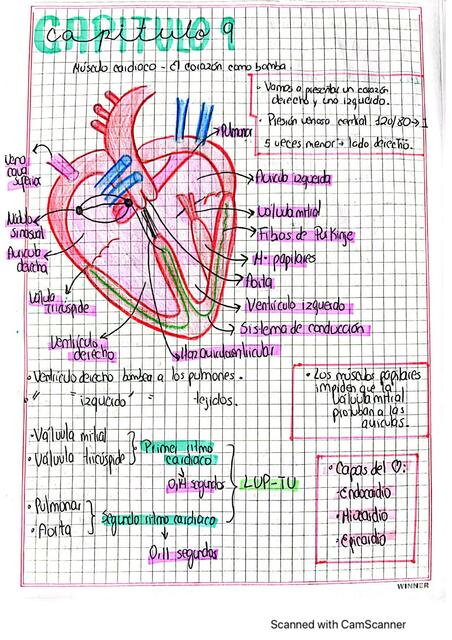 CAPITULO 9
capitulo 9
Músculo cardiaco - El corazón como bomba.
• Vamos a presentar un corazón
derecho y uno izquierdo.
• Presión venosa central 120/80→1
5 veces menor → lado derecho.
Pulmonar
Vena
cava
superior
Nódulo
sinusal
Auricula
derecha
Válvula
tricúspide
Ventrículo
derecho
Auricula izquierda
Válvula mitral
Fibras de Purkinje
M. papilares
Aorta
Ventrículo izquierdo
Sistema de conducción
Haz auriculoventricular
• Ventrículo derecho bombea a los pulmones.
• " " izquierdo " " tejidos.
• Los músculos papilares
impiden que la
válvula mitral
protuban a las
auriculas.
• Válvula mitral
• Válvula tricúspide
Primer ritmo
cardiaco
0,14 segundos
LUP-TU
• Pulmonar
• Aorta
Segundo ritmo cardiaco
0,11 segundos
• Capas del ♡:
•Endocardio
•Miocardio
•Epicardio
WINNER
Scanned with CamScanner